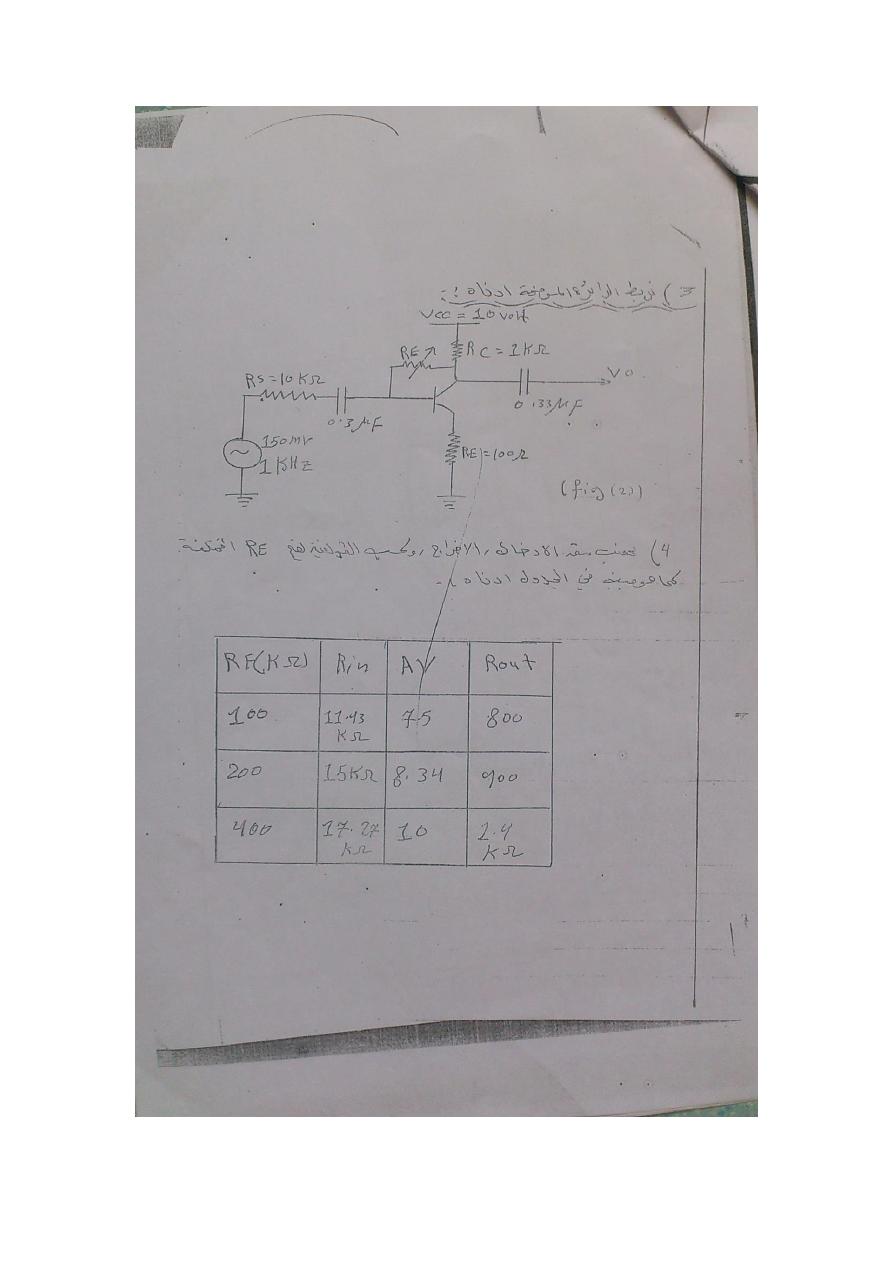 3) نربط الدائرة الموضحة ادناه :-
VCC = 10 volt
RE
RC = 1KΩ
RS=10 KΩ
Vo
0.3μF
0.33μF
150mv
1KHz
RE=100Ω
(fig(2))
4) نحسب الادخال , الاخراج , وكسب الفولتية لقيم RE المختلفة
كما هو مبينه في الجدول ادناه :-
RF(KΩ) Rin AV Rout
100 11.43 KΩ 7.5 800
200 15KΩ 8.34 900
400 17.27 KΩ 10 1.4 KΩ